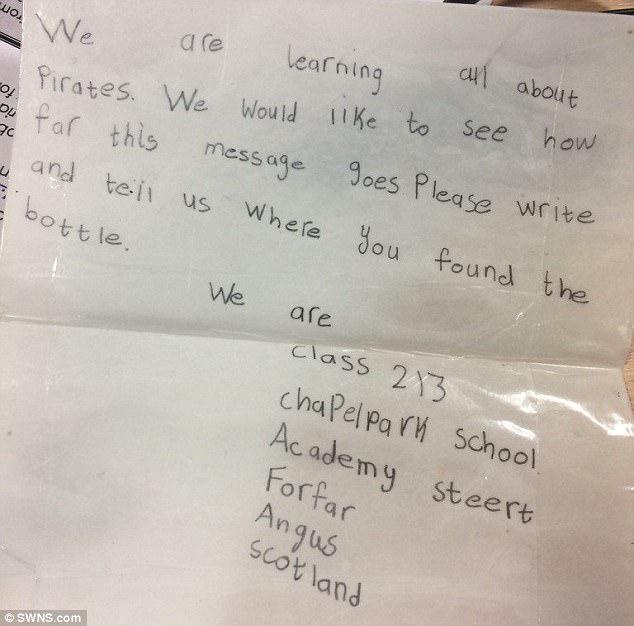 We are learning all about
Pirates. We would like to see how
far this message goes Please write
and tell us where you found the
bottle.
We are
class 2/3
chapelpark school
Academy steert
Forfar
Angus
scotland
© SWNS.com